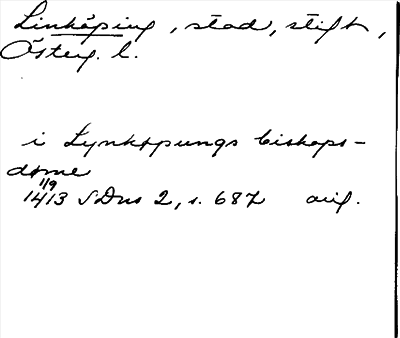 Linköping, stad, stift,
Österg. l.
i Lynköpungs biskops-
döme
1/9
1413 SDns 2, s. 687 orig.